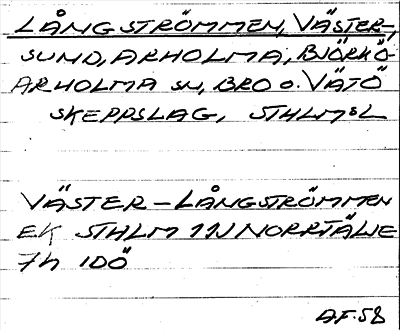 LÅNGSTRÖMMEN, VÄSTER-,
SUND, ARHOLMA, BJÖRKÖ-
ARHOLMA SN, BRO o. VÄTÖ
SKEPPSLAG, STHLMSL
VÄSTER-LÅNGSTRÖMMEN
EK STHLM 11J NORRTÄLJE
7h IDÖ
AF.58